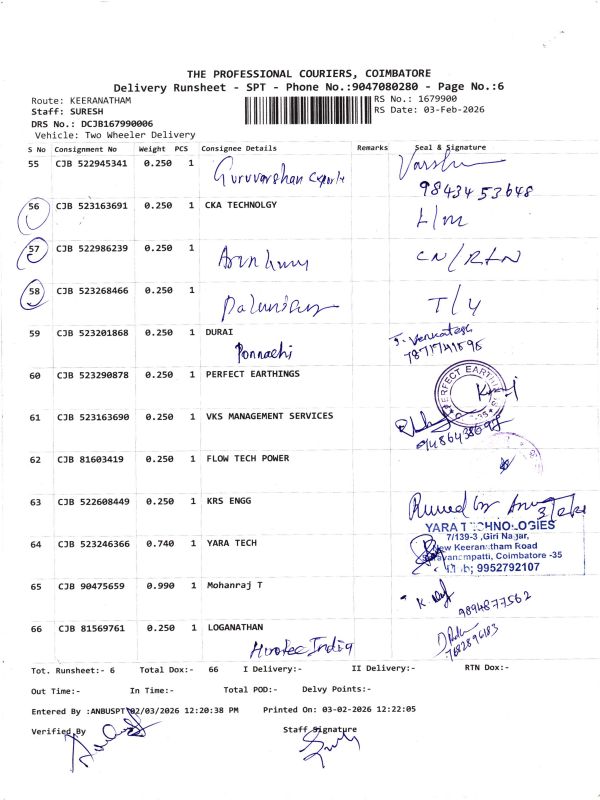 THE PROFESSIONAL COURIERS, COIMBATORE
Delivery Runsheet - SPT - Phone No.:9047080280 - Page No.:6
Route: KEERANATHAM RS No.: 1679900
Staff: SURESH RS Date: 03-Feb-2026
DRS No.: DCJB167990006
Vehicle: Two Wheeler Delivery
S No Consignment No Weight PCS Consignee Details Remarks Seal & Signature
55 CJB 522945341 0.250 1 Guruvarshan Exports
9843453648
56 CJB 523163691 0.250 1 CKA TECHNOLGY L/M
57 CJB 522986239 0.250 1 CN/RTN
58 CJB 523268466 0.250 1 T/4
59 CJB 523201868 0.250 1 DURAI J. Venkatesh
Ponnachi
60 CJB 523290878 0.250 1 PERFECT EARTHINGS PERFECT EARTH
61 CJB 523163690 0.250 1 VKS MANAGEMENT SERVICES
62 CJB 81603419 0.250 1 FLOW TECH POWER
63 CJB 522608449 0.250 1 KRS ENGG
64 CJB 523246366 0.740 1 YARA TECH YARA TECHNOLOGIES
7/139-3 ,Giri Nagar,
New Keeranatham Road
Saravanampatti, Coimbatore -35
9952792107
65 CJB 90475659 0.990 1 Mohanraj T
9894877562
66 CJB 81569761 0.250 1 LOGANATHAN
India
Tot. Runsheet:- 6 Total Dox:- 66 I Delivery:- II Delivery:- RTN Dox:-
Out Time:- In Time:- Total POD:- Delvy Points:-
Entered By :ANBUSPT 02/03/2026 12:20:38 PM Printed On: 03-02-2026 12:22:05
Verified By Staff Signature